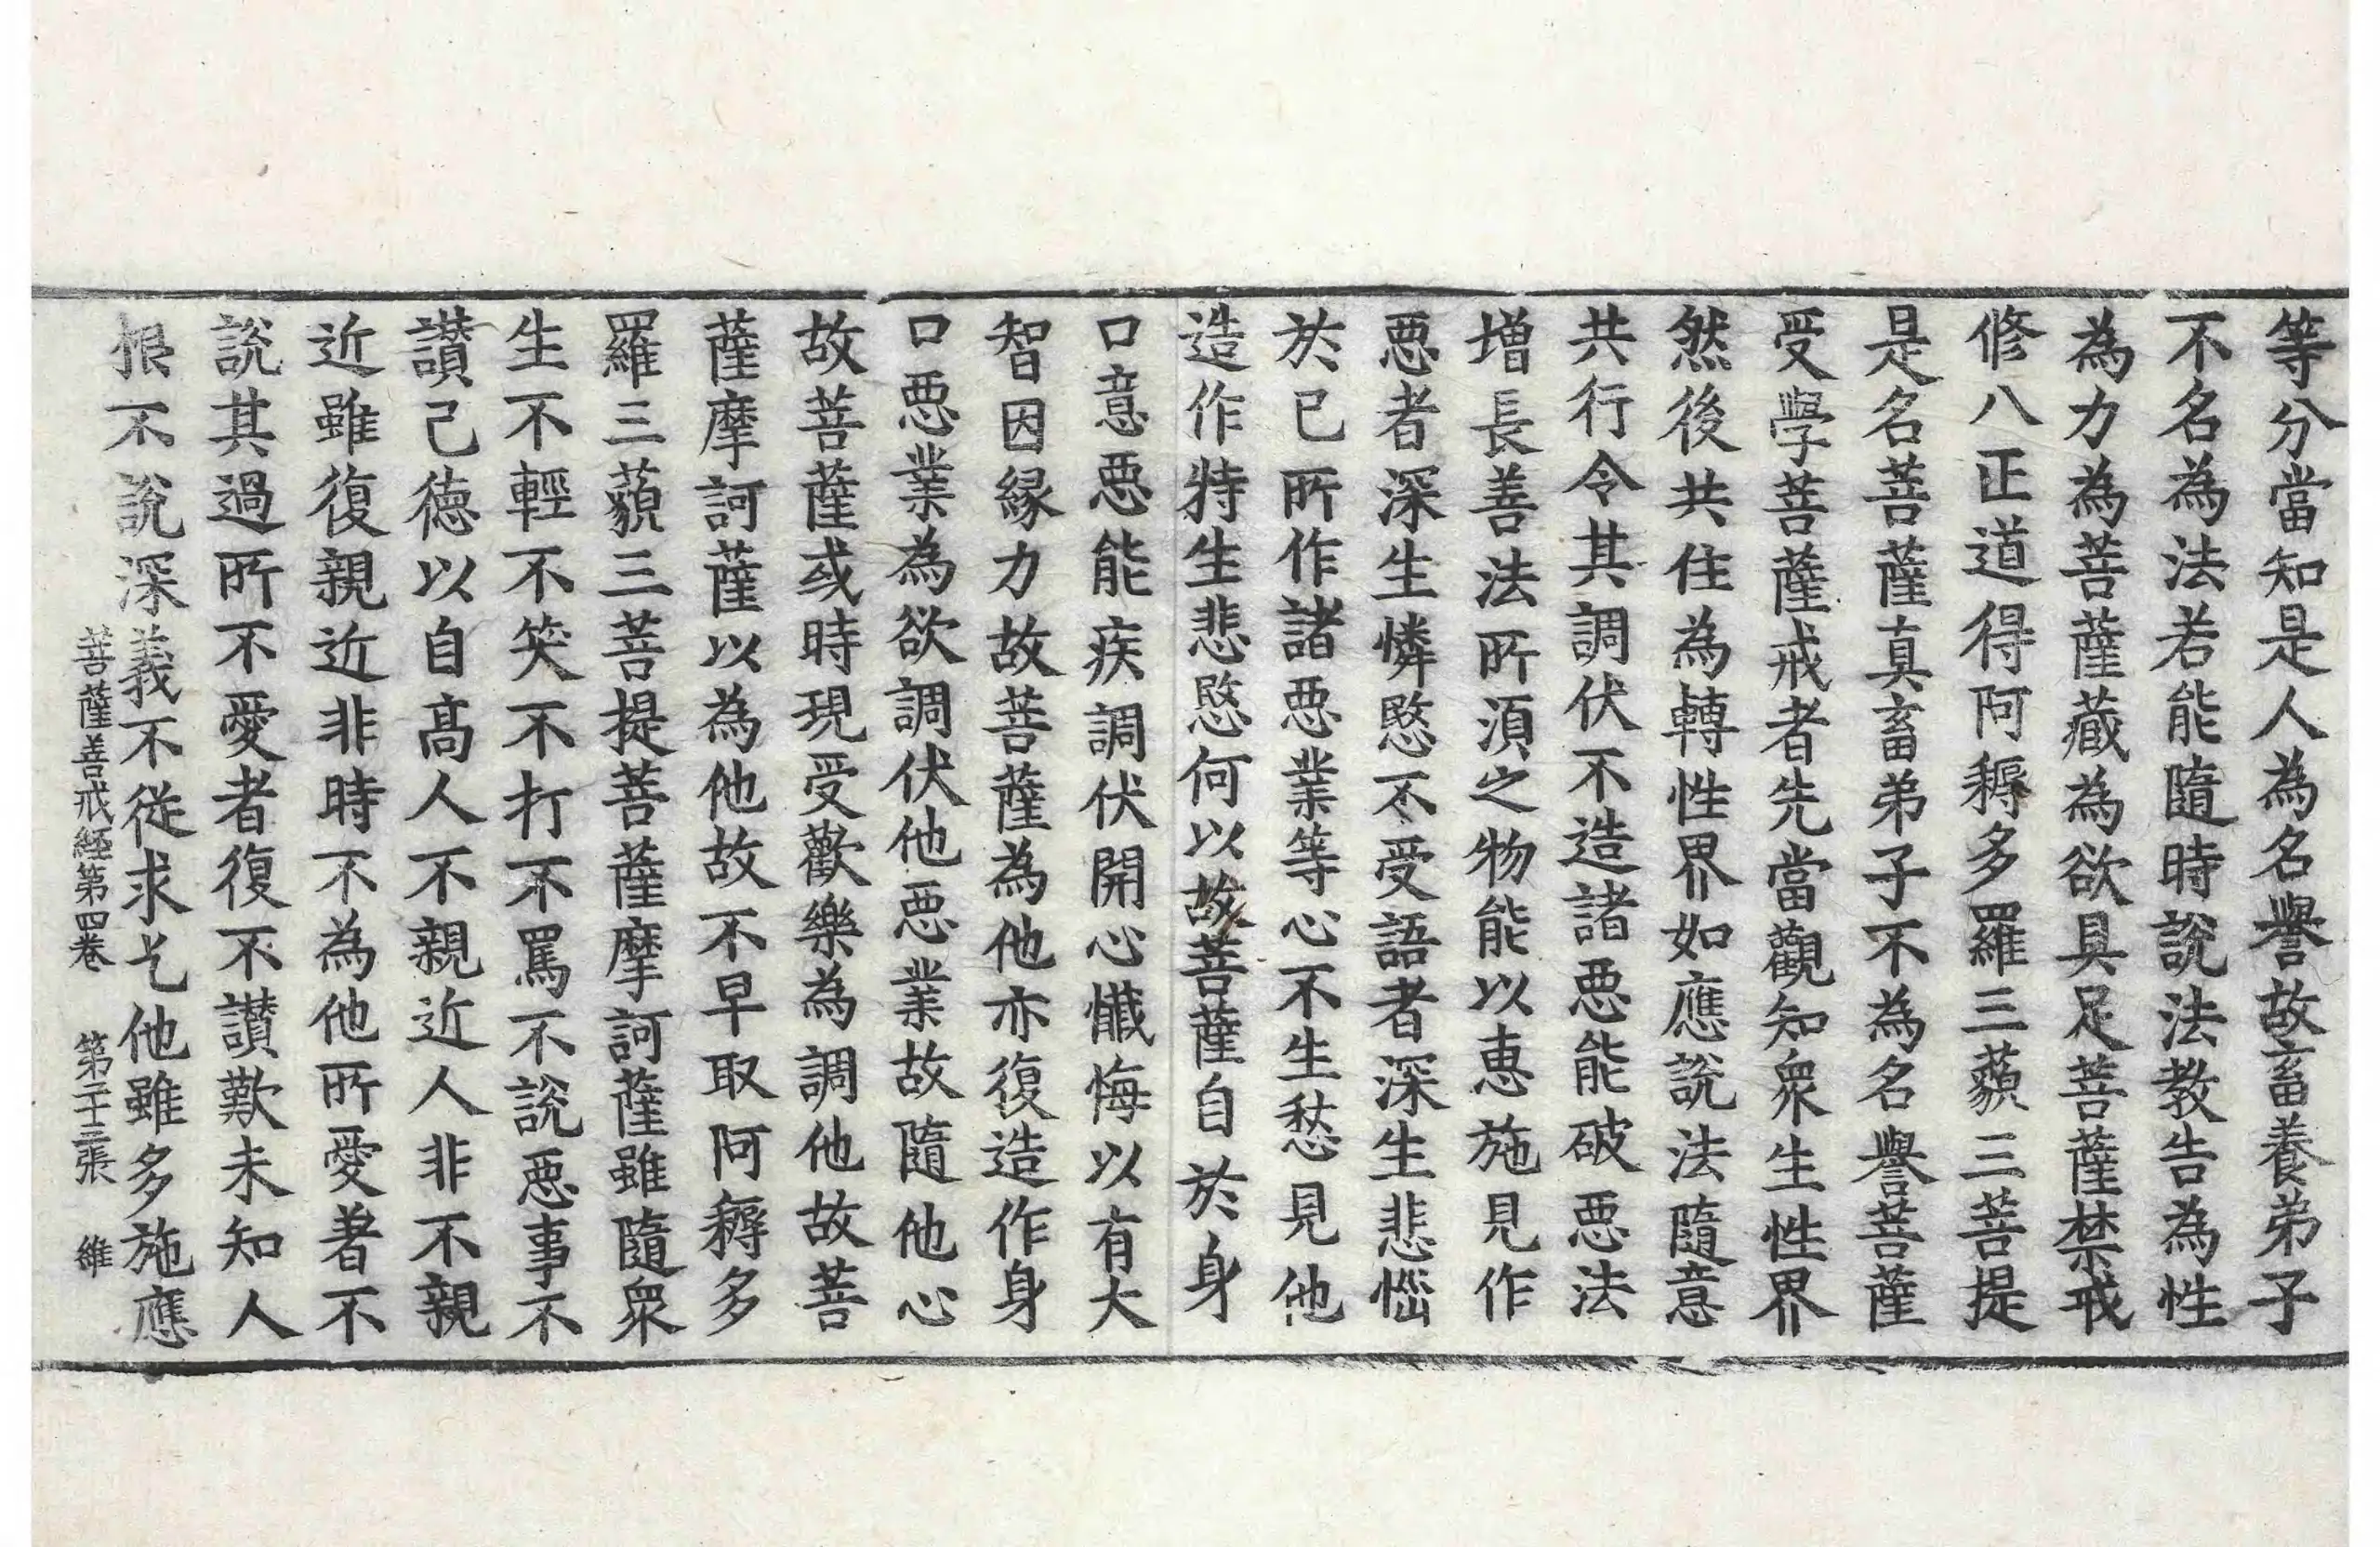 等分當知是人為名譽故畜養弟子
不名為法若能隨時說法教告為性
為力為菩薩藏為欲具足菩薩禁戒
修八正道得阿耨多羅三藐三菩提
是名菩薩真畜弟子不為名譽菩薩
受學菩薩戒者先當觀知衆生性界
然後共住為轉性界如應說法隨意
共行令其調伏不造諸惡能破惡法
增長善法所須之物能以惠施見作
惡者深生憐愍不受語者深生悲惱
於己所作諸惡業等心不生愁見他
造作特生悲愍何以故菩薩自於身
口意惡能疾調伏開心懺悔以有大
智因緣力故菩薩為他亦復造作身
口惡業為欲調伏他惡業故隨他心
故菩薩或時現受歡樂為調他故菩
薩摩訶薩以為他故不早取阿耨多
羅三藐三菩提菩薩摩訶薩雖隨衆
生不輕不笑不打不罵不說惡事不
讚己德以自高人不親近人非不親
近雖復親近非時不為他所愛著不
說其過所不愛者復不讚歎未知人
根不說深義不從求乞他雖多施應
菩薩善戒經第四卷 第二十三張 維